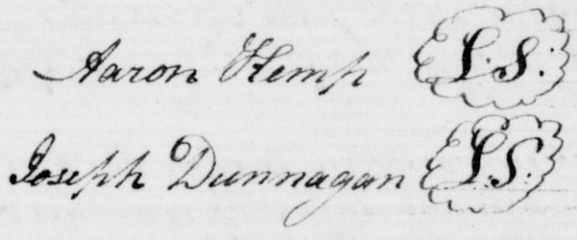 Aaron Hemp L.S.
Joseph Dunnagan L.S.